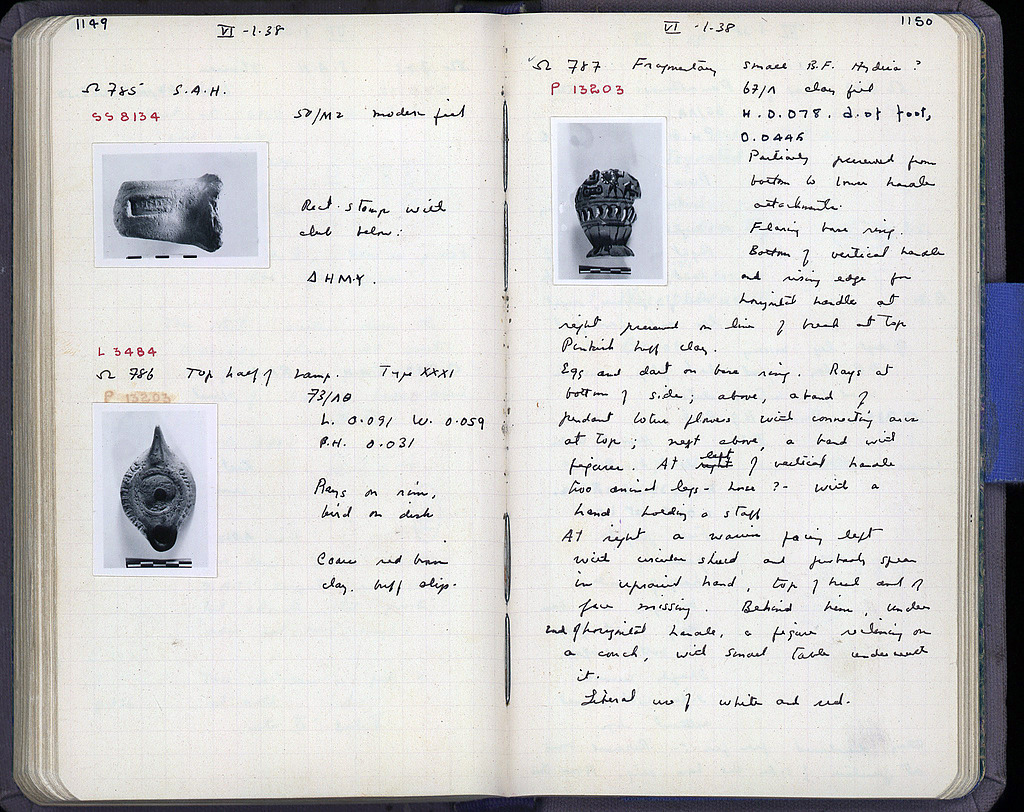 1149
VI -1-38
Ω 785 S.A.H.
SS 8134
50/ΜΖ modern fill
Rect. stamp with
club below:
ΔΗΜΥ.
L 3484
Ω 786 Top half of Lamp. Type XXXI
P 13203
73/ΛΘ
L. 0.091 W. 0.059
P.H. 0.031
Rays on rim,
bird on disk
Coarse red brown
clay, buff slip.
1150
VI -1-38
Ω 787 Fragmentary small B.F. Hydria?
P 13203
67/Λ clay fill
H. 0.078. d. of foot,
0.0445
Partially preserved from
bottom to lower handle
attachments.
Flaring base ring.
Bottom of vertical handle
and rising edge for
horizontal handle at
right preserved on line of break at top
Pinkish buff clay.
Egg and dart on base ring. Rays at
bottom of side; above, a band of
pendant lotus flowers with connecting arcs
at top; next above, a band with
figures. At right left of vertical handle
two animal legs - horse? - with a
hand holding a staff
At right a warrior facing left
with circular shield and probably spear
in upraised hand, top of head and of
face missing. Behind him, under
end of horizontal handle, a figure reclining on
a couch, with small table underneath
it.
Liberal use of white and red.